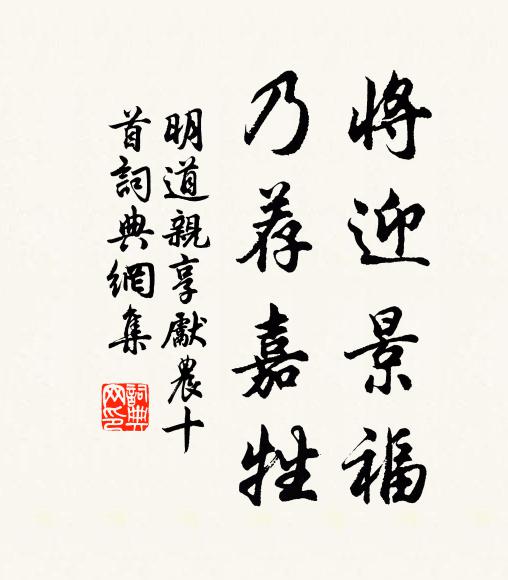 将迎景福
乃荐嘉牲
明道親享獻農十
首詞典網集
詞典
网印